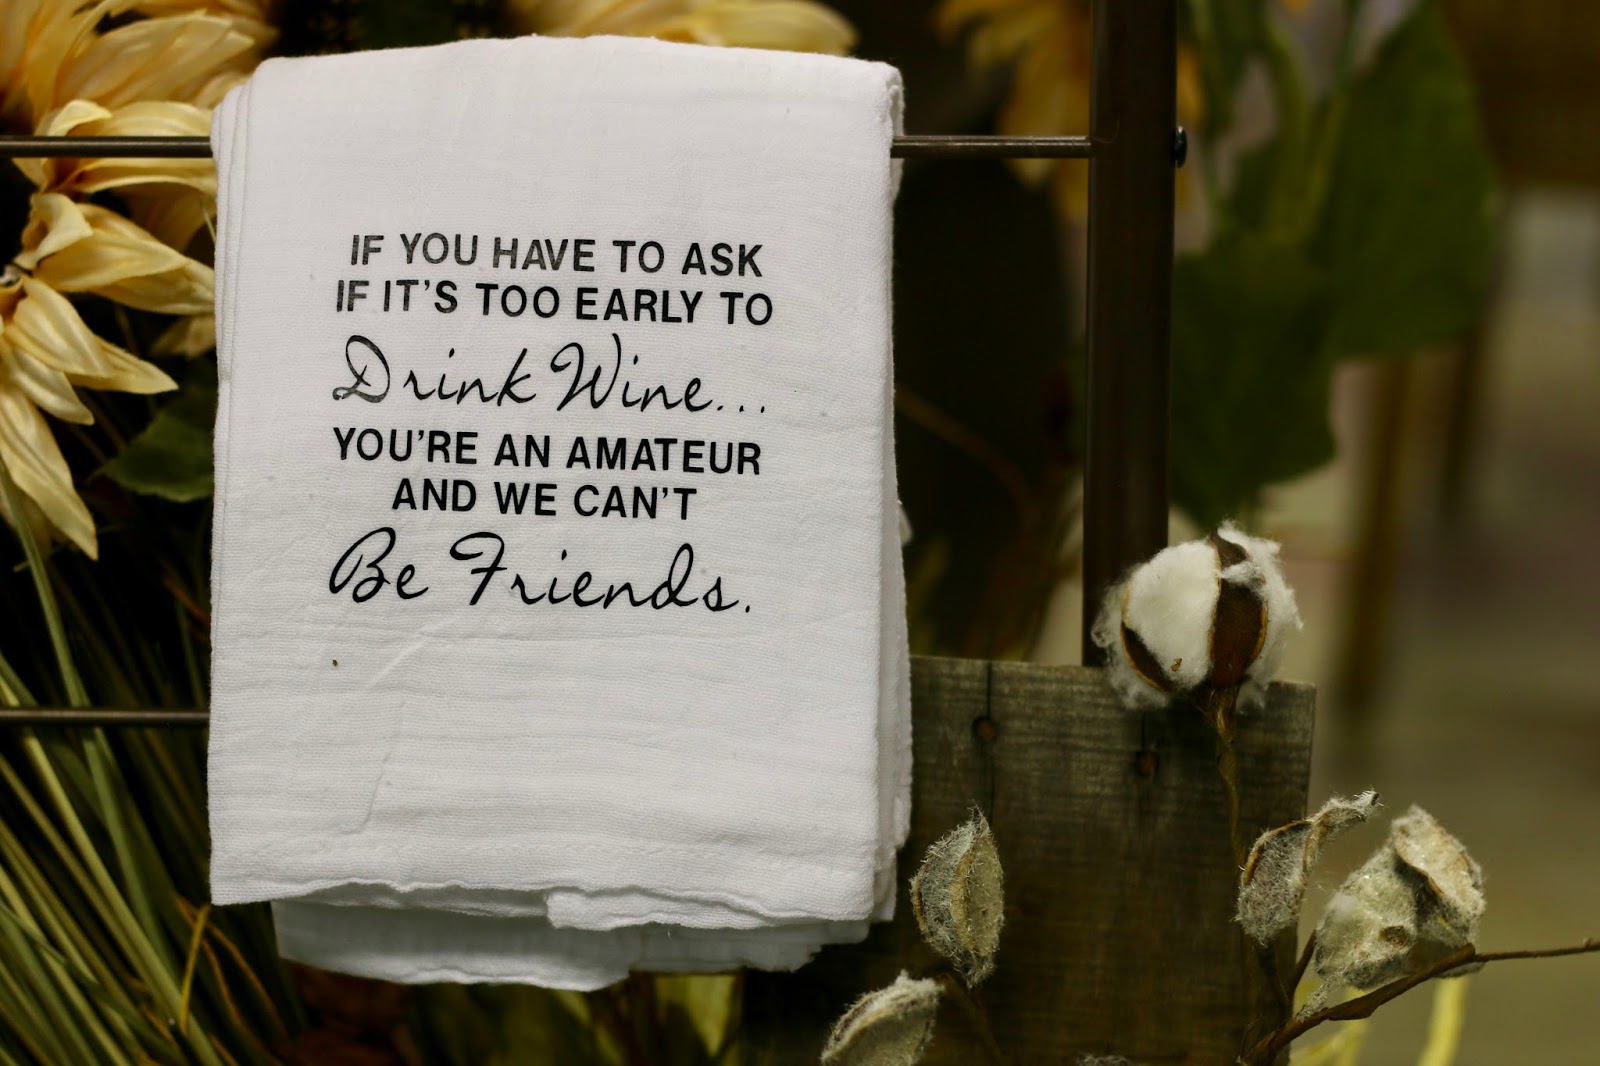 IF YOU HAVE TO ASK
IF IT'S TOO EARLY TO
Drink Wine...
YOU'RE AN AMATEUR
AND WE CAN'T
Be Friends.